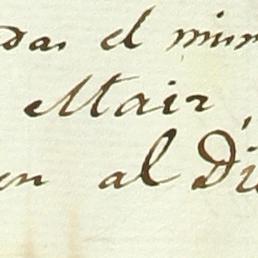 das el mun
Mair,
en al Di